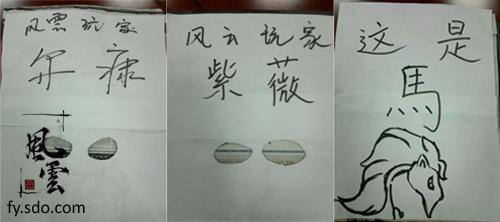 风雲玩家
尔康
風雲
fy.sdo.com
风云玩家
紫薇
这是
馬